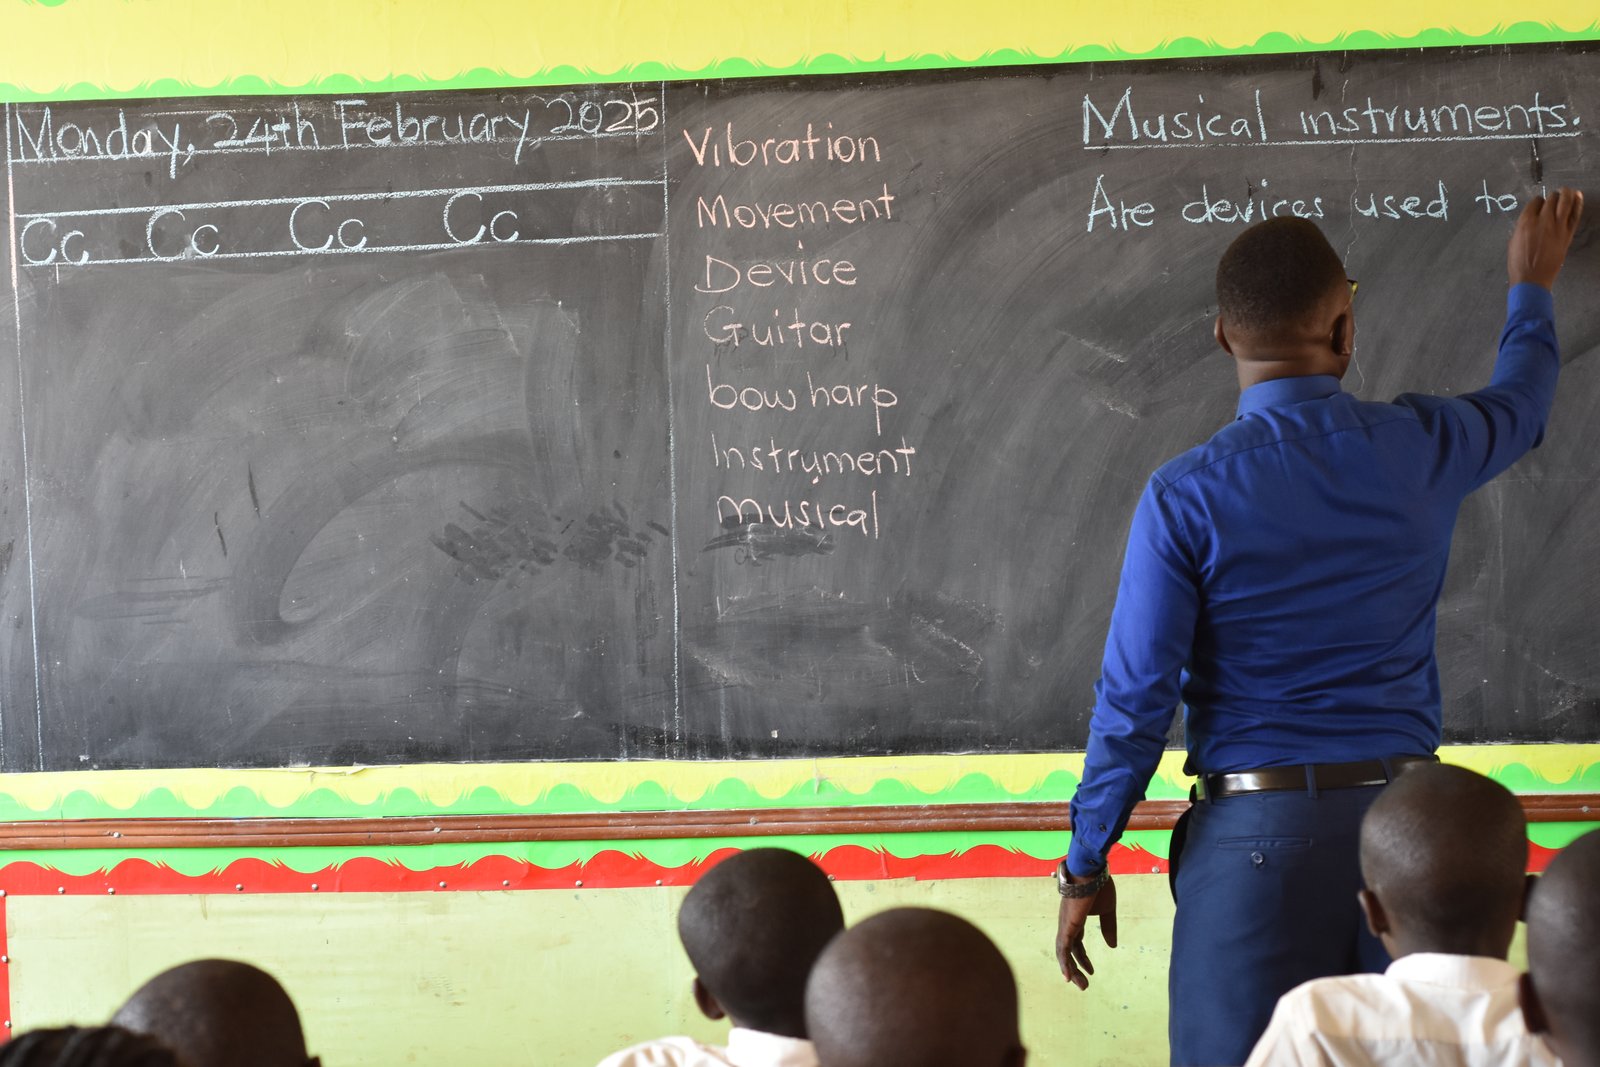 Monday, 24th February 2025
Cc Cc Cc Cc
Vibration
Movement
Device
Guitar
bow harp
Instrument
Musical
Musical instruments.
Are devices used to